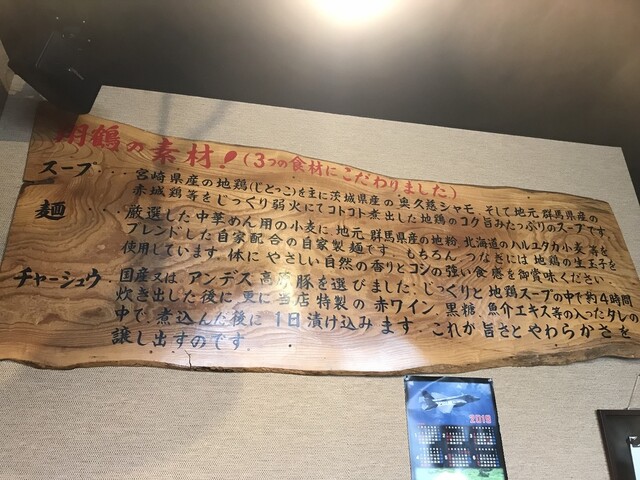 鶴の素材!(3つの食材にこだわりました)
スープ・・・宮崎県産の地鶏(じとっこ)を主に茨城県産の奥久慈シャモ、そして地元群馬県産の
赤城鶏等をじっくり弱火にてコトコト煮出した地鶏のコク旨みたっぷりのスープです
麺・・・厳選した中華めん用の小麦に地元群馬県産の地粉北海道のハルユタカ小麦等を
ブレンドした自家配合の自家製麺です。もちろんつなぎには地鶏の生玉子を
使用しています。体にやさしい自然の香りとコシの強い食感を御賞味ください
チャーシュウ・国産又は、アンデス高原豚を選びました。じっくりと地鶏スープの中で約4時間
炊き出した後に更に当店特製の赤ワイン、黒糖、魚介エキス等の入ったタレの
中で煮込んだ後に1日漬け込みます。これが旨さとやわらかさを
譲し出すのです。
2018